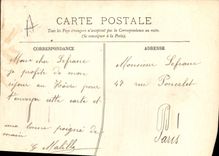 A
CARTE POSTALE
Tous les Pays étrangers n'acceptent pas la Correspondance au verso.
(Se renseigner à la Poste).
CORRESPONDANCE
ADRESSE
Mon cher Lefranc
je profite de mon
séjour en Isère pour
t'envoyer cette carte et
une bonne poignée de
main
Monsieur Lefranc
47 rue Poncelet
Paris